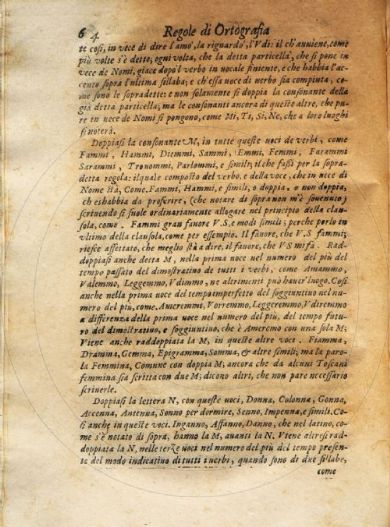 64
Regole di Ortografia
te cosi, in vice di dire l'amo, la riguardo, l'Vdi: il ch'auuiene, come
più volte s'è detto, ogni volta, che la detta particella, che si pone in
vece de Nomi, giace dopo'l verbo in vocale finiente, e che habbia l'ac-
cento sopra l'ultima sillaba; e ch'essa uoce di verbo sia compiuta, co-
me sono le sopradette: e non solamente si doppia la consonante della
già detta particella, ma le consonanti ancora di queste altre, che pu-
re en uece de Nomi si pongono, come Mi, Ti, Si, Ne, che a loro luoghi
si noterà.
Doppiasi la consonante M, in tutte queste uoci de verbi, come
Fammi, Hammi, Diemmi, Sammi, Emmi, Femmi, Farammi
Sarammi, Tronommi, Parlommi, e simili; il che fassi per la sopra-
detta regola: ilquale composto del verbo, e della voce, che in uece di
Nome stà, Come, Fammi, Hammi, e simili, o doppia, o non doppia,
ch'eshabbia da proferire, (che notare di sopra non m'è souenuto)
scriuendo si suole ordinariamente allogare nel principio della clau-
sula, come. Fammi gran fauore V.S, e modi simili; perche porlo in
vltimo della clausola, come per essempio. Il fauore, che V.S fammi;
riesce affettato, che meglio stà a dire, il fauore, che V.S mi fà. Rad-
doppiasi anche detta M, nella prima uoce nel numero del più del
tempo passato del dimostratino de tutti i verbi, come Amammo,
Valemmo, Leggemmo, Vdimmo, ne altrimenti può hauer luogo. Così
anche nella prima uoce del tempo imperfetto del soggiuntiuo nel nu-
mero del più, come, Ameremmi, Vorremmo, Leggeremmo, Vdiremmo
a differenza della prima uoce nel numero del più, del tempo futuro
del dimostratiuo, e soggiuntiuo, che è Ameremo con una sola M;
Viene anche raddoppiata la M, in queste altre voce. Fiamma,
Dramma, Gemma, Epigramma, Somma, & altre simili; ma la paro-
la Femmina, Comune con doppia M, ancora che da alcuni Toscani
femmina sia scritta con due M; dicono altri, che non pare necessario
scriuerle.
Doppiasi la lettera N, con queste uoci, Donna, Colonna, Gonna,
Accenna, Antenna, Sonno per dormire, Senno, Impenna, e simili. Co-
sì anche in queste voci. Inganno, Affanno, Danno, che nel latino, co-
me s'è notato di sopra, hanno la M, auanti la N. Viene altresì rad-
doppiata la N, nelle terze uoci nel numero del più del tempo presen-
te del modo indicatiuo di tutti i uerbi, quando sono di due sillabe,
come